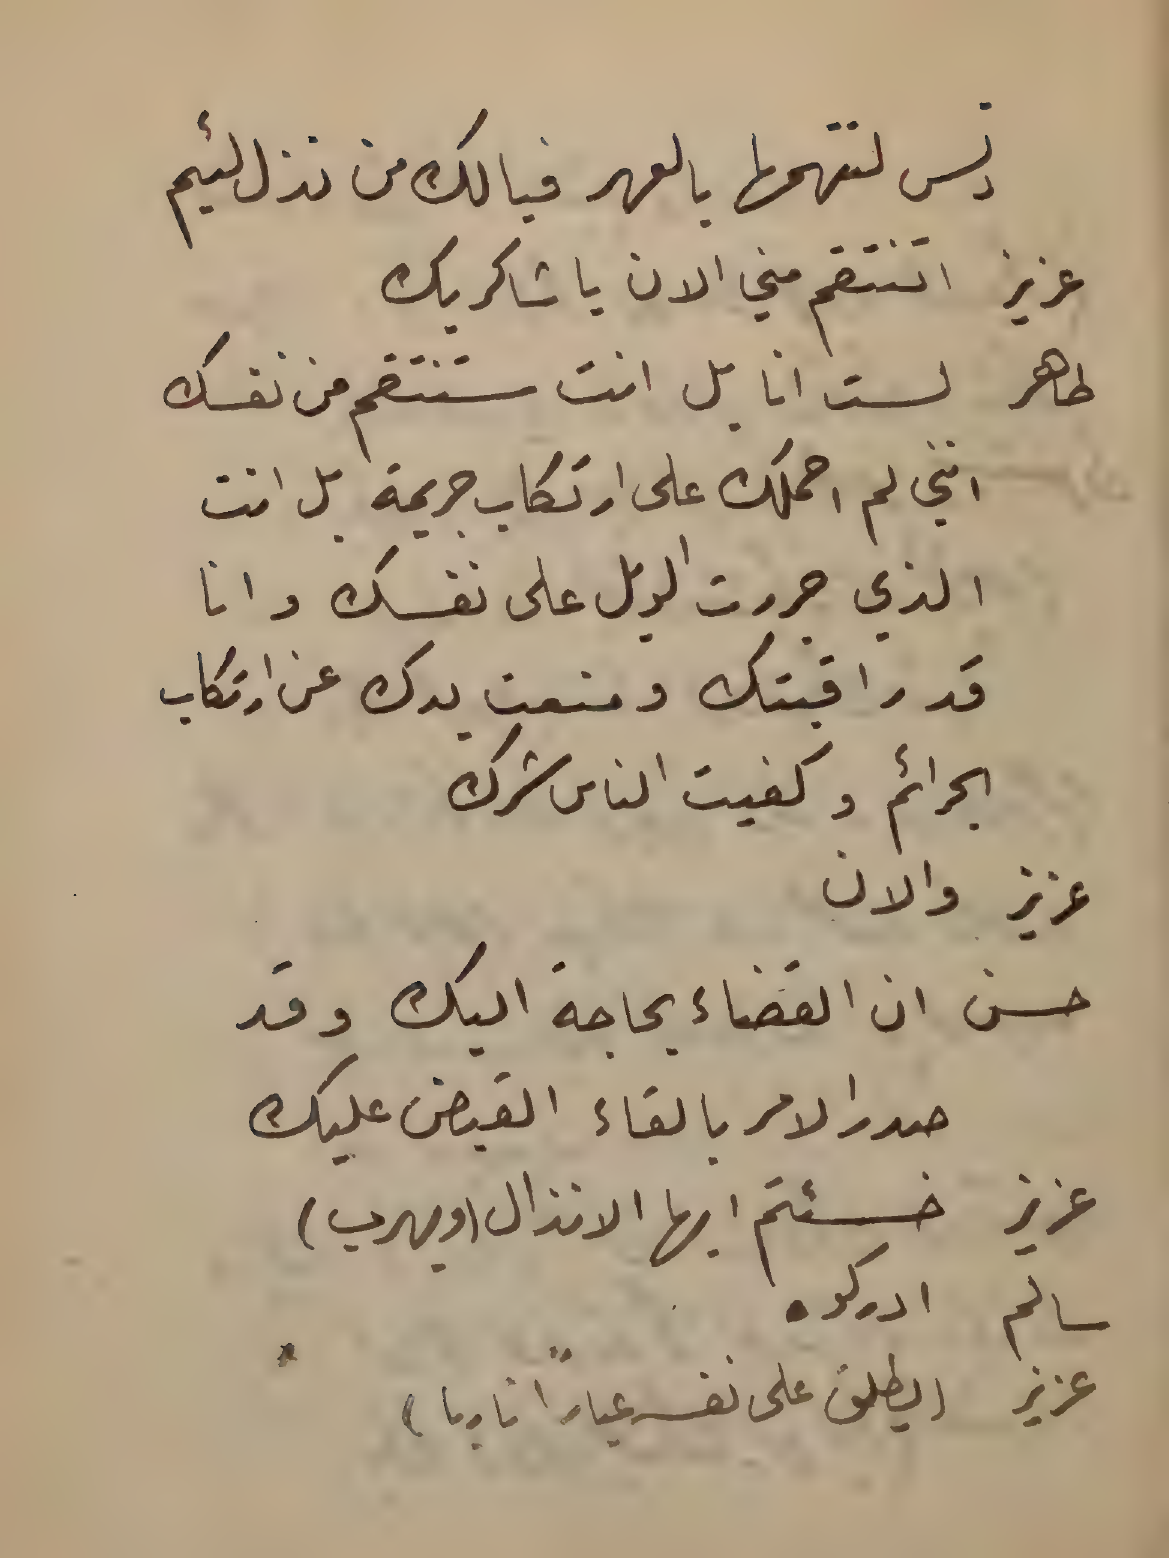 تس لتتهمها بالعهر فيالك من نذل لئيم
عزيز اتنتقم مني الان يا شاكر بك
طاهر لست انا بل انت ستنتقم من نفسك
انني لم احملك على ارتكاب جريمة بل انت
الذي جررت الويل على نفسك وانا
قد راقبتك ومنعت يدك عن ارتكاب
الجرائم وكفيت الناس شرك
عزيز والان
حسن ان القضاء بحاجة اليك وقد
صدر الامر بالقاء القبض عليك
عزيز خسئتم ايها الانذال (ويهرب)
سالم ادركوه
عزيز (يطلق على نفسه عياراً ناريا)